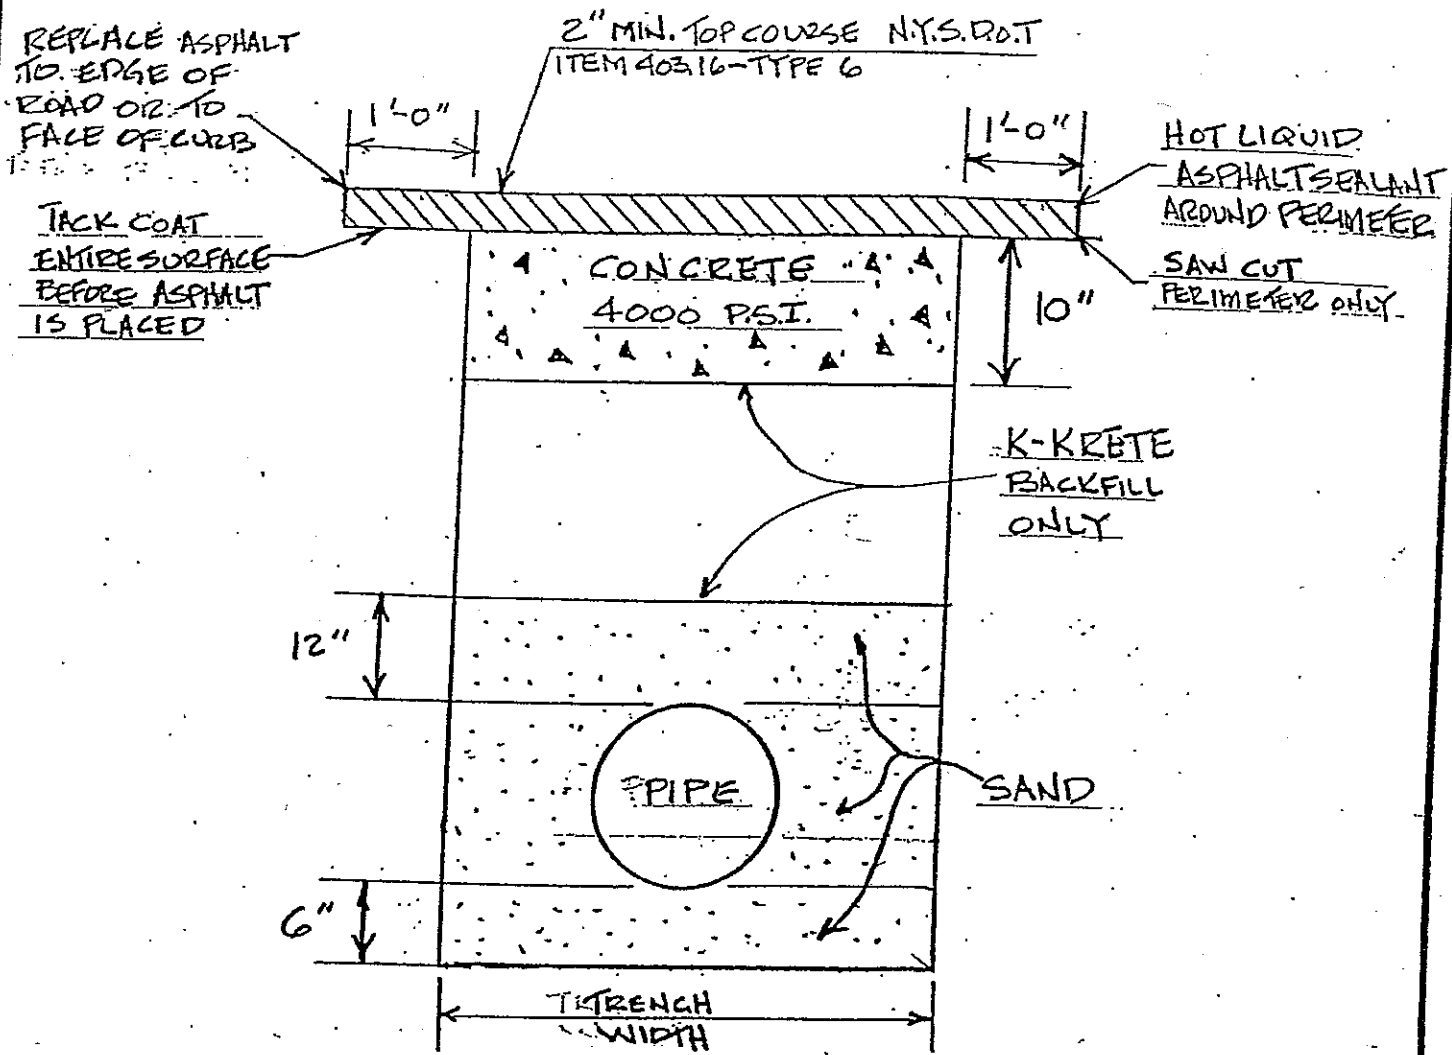 REPLACE ASPHALT
TO EDGE OF
ROAD OR TO
FACE OF CURB
2" MIN. TOP COURSE N.Y.S.D.O.T
ITEM 403.16-TYPE 6
1'-0"
1'-0"
HOT LIQUID
ASPHALT SEALANT
AROUND PERIMETER
TACK COAT
ENTIRE SURFACE
BEFORE ASPHALT
IS PLACED
CONCRETE
4000 P.S.I.
SAW CUT
PERIMETER ONLY
10"
K-KRETE
BACKFILL
ONLY
12"
PIPE
SAND
6"
TRENCH
WIDTH